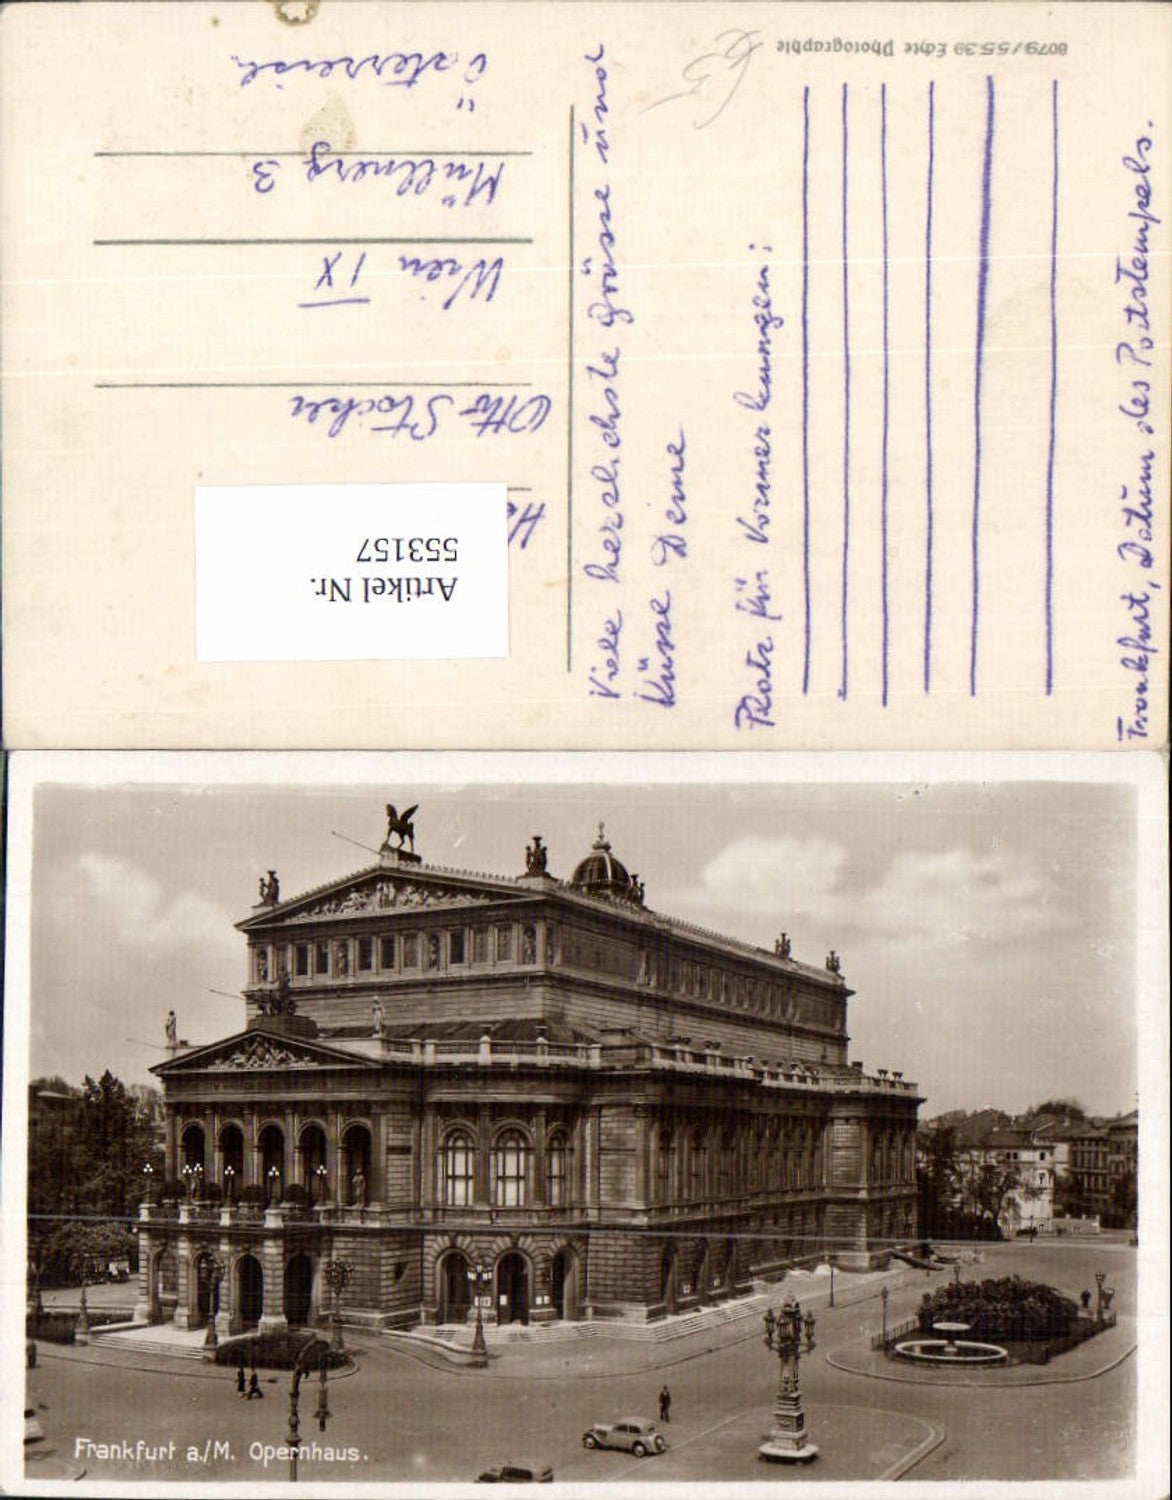 8079/5539 Echte Photographie
Frankfurt, Datum des Poststempels.
Platz für Vormerkungen:
Viele herzlichste Grüsse und
Küsse Deine
Otto Stöcker
Wien IX
Müllnerg 3
Österreich
Artikel Nr.
553157
Frankfurt a./M. Opernhaus.